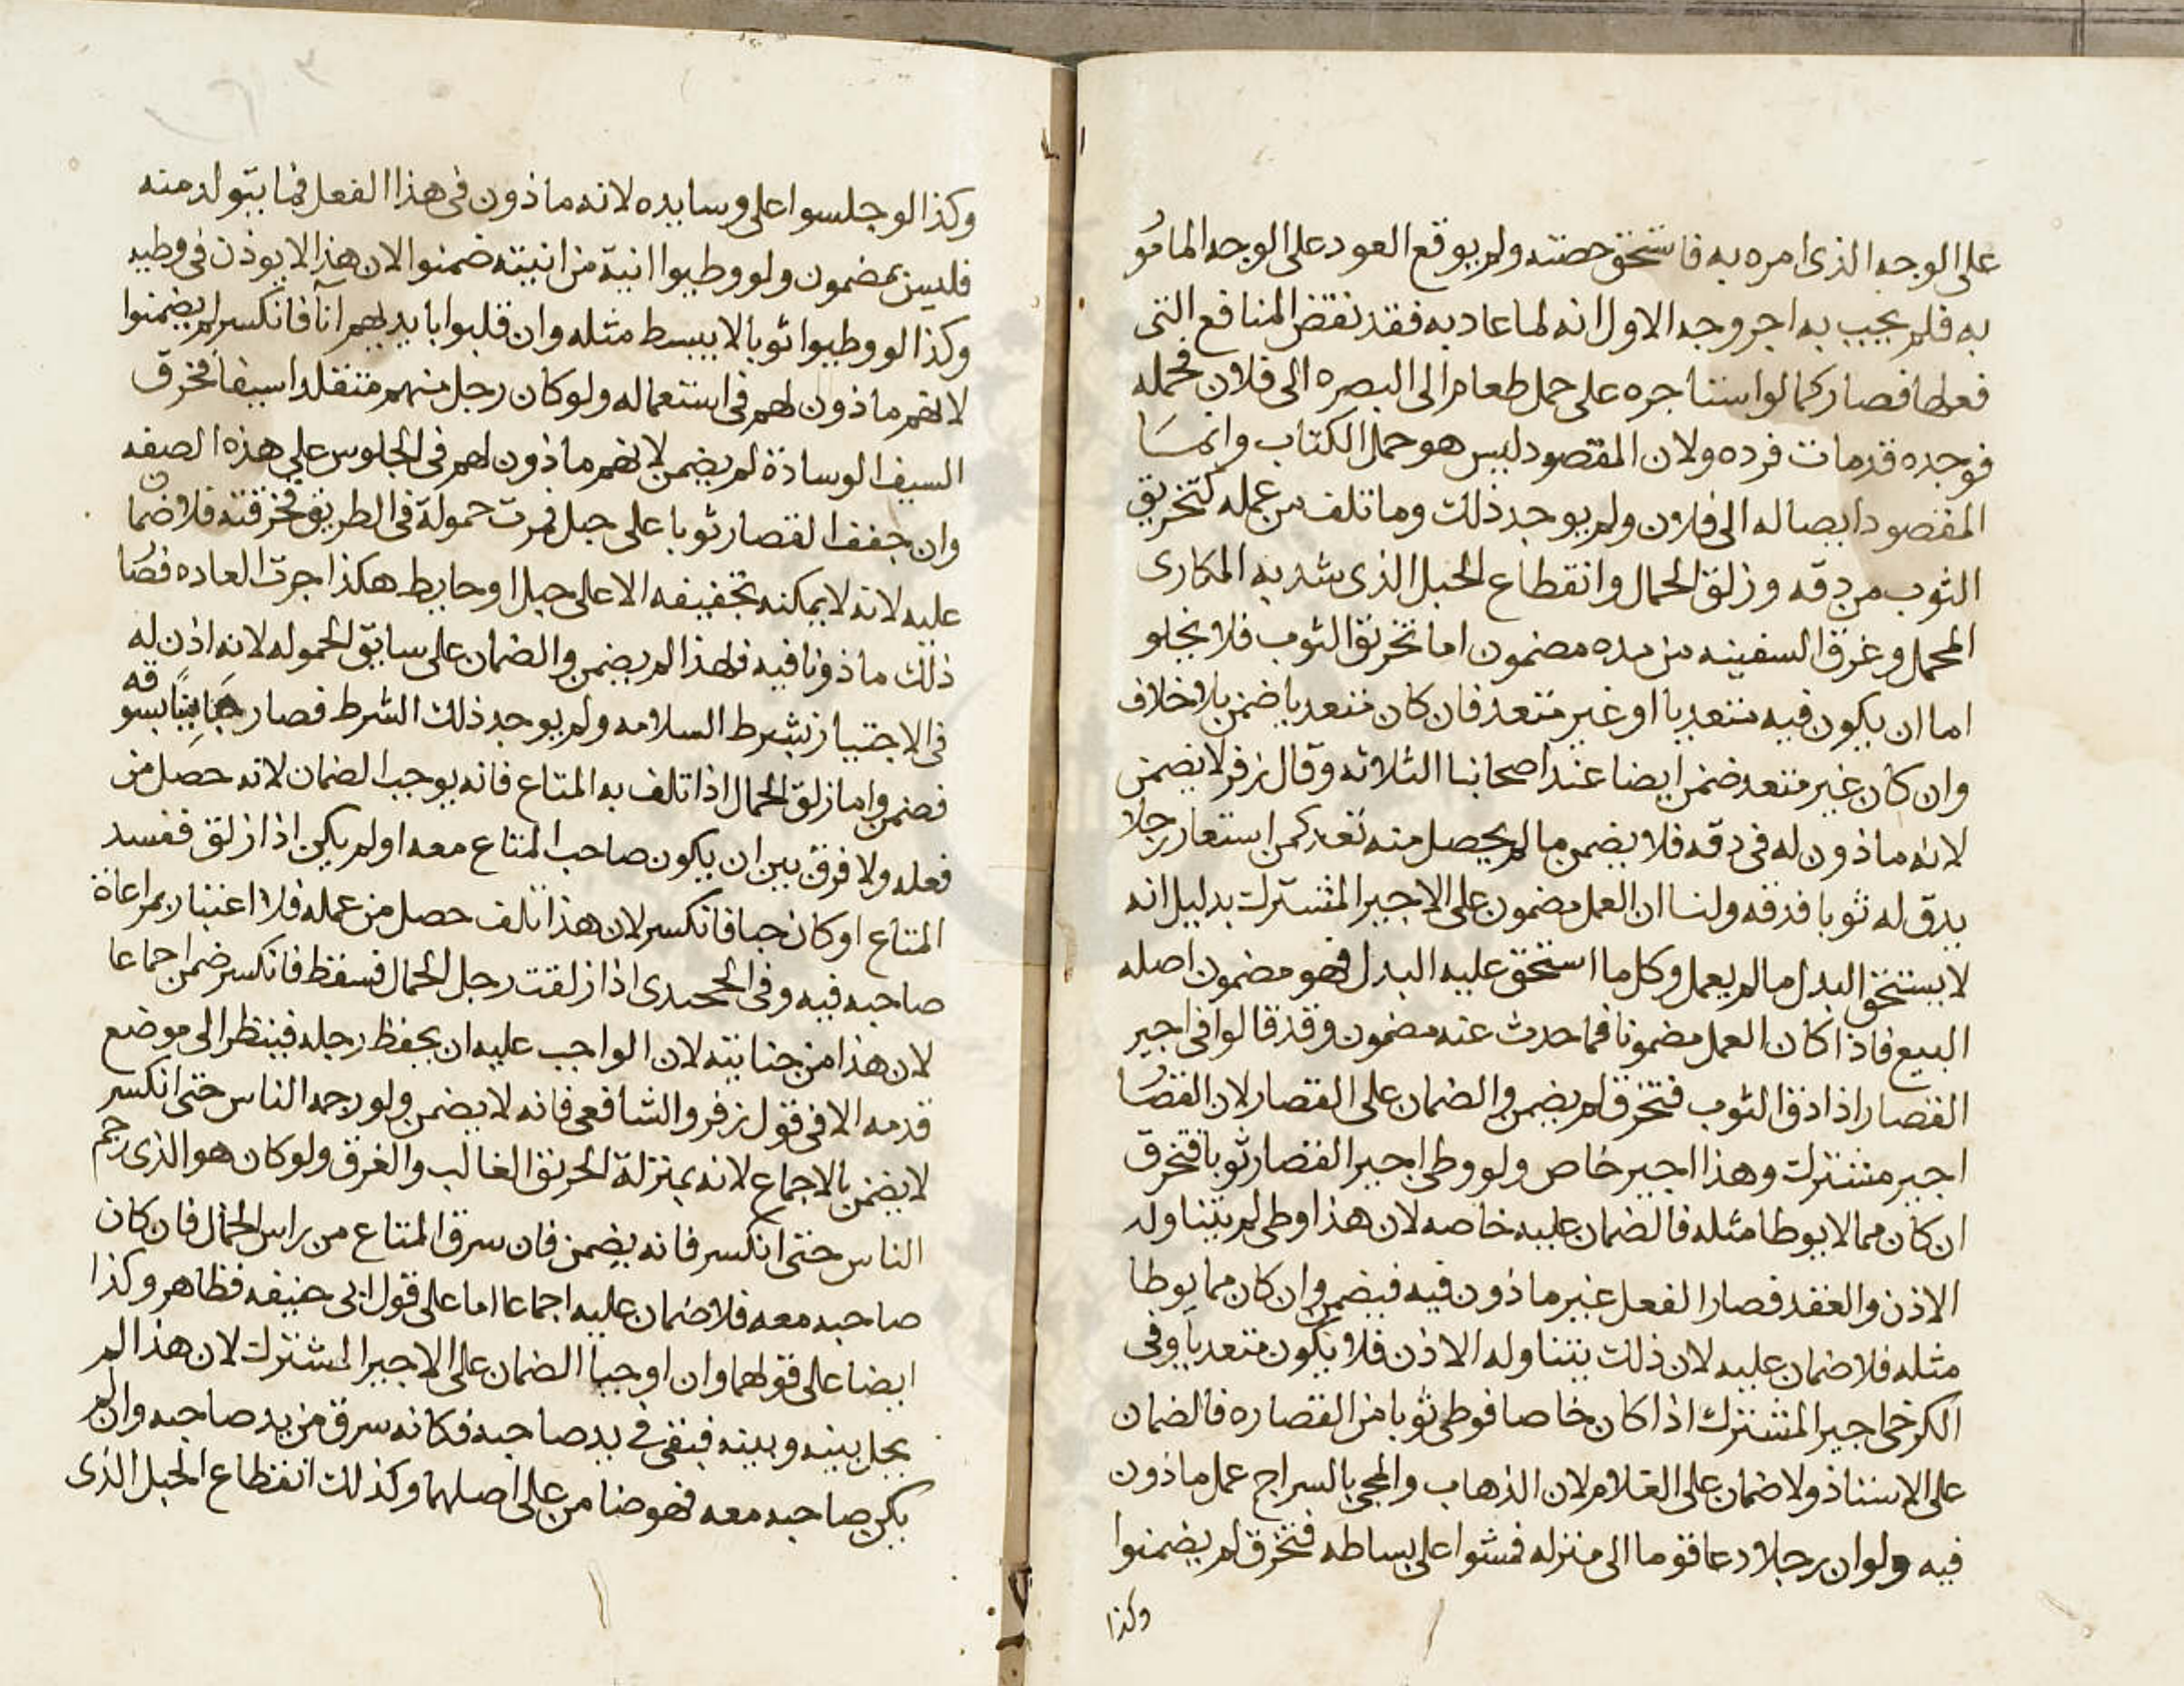 على الوجه الذى امره به فاستحق حصته ولم يوقع العود على الوجه المامو
به فلم يجب به اجر وجه الاول انه لما عاد به فقد نقض المنافع التى
فعلها فصار كما لو استاجره على حمل طعام الى البصره الى فلان فحمله
فوجده قد مات فرده ولان المقصود ليس هو حمل الكتاب وانما
المقصود ايصاله الى فلان ولم يوجد ذلك وما تلف من عمله كتخريق
الثوب من دقه وزلق الحمال وانقطاع الحبل الذى شد به المكارى
المحمل وغرق السفينه من مده مضمون اما تخريق الثوب فلا يخلو
اما ان يكون فيه متعديا او غير متعد فان كان متعديا ضمن بلا خلاف
وان كان غير متعد ضمن ايضا عند اصحابنا الثلاثه وقال زفر لا يضمن
لانه ماذون له فى دقه فلا يضمن ما لم يحصل منه تعد كمن استعار رجلا
يدق له ثوبا فدقه ولنا ان العمل مضمون على الاجير المشترك بدليل انه
لا يستحق البدل ما لم يعمل وكل ما استحق عليه البدل فهو مضمون اصله
البيع فاذا كان العمل مضمونا فما حدث عنه مضمون وقد قالوا فى اجير
القصار اذا دق الثوب فتخرق لم يضمن والضمان على القصار لان القصا
اجير مشترك وهذا اجير خاص ولو وطى اجير القصار ثوبا فتخرق
ان كان مما لا يوطا مثله فالضمان عليه خاصه لان هذا وطى لم يتناوله
الاذن والعقد فصار الفعل غير ماذون فيه فيضمن وان كان مما يوطا
مثله فلا ضمان عليه لان ذلك يتناوله الاذن فلا يكون متعديا وفى
الكرخى اجير المشترك اذا كان خاصا فوطى ثوبا من القصاره فالضمان
على الاستاذ ولا ضمان على الغلام لان الذهاب والمجى بالسراج عمل ماذون
فيه ولو ان رجلا دعا قوما الى منزله فمشوا على بساطه فتخرق لم يضمنوا
وكذا
وكذا لو جلسوا على وسايده لانه ماذون فى هذا الفعل فما يتولد منه
فليس بمضمون ولو وطيوا انية من انيته ضمنوا لان هذا لا يوذن فى وطيه
وكذا لو وطيوا ثوبا لا يبسط مثله وان قلبوا بايديهم انآ فانكسر لم يضمنوا
لانهم ماذون لهم فى استعماله ولو كان رجل منهم متقلدا سيفا فخرق
السيف الوسادة لم يضمن لانهم ماذون لهم فى الجلوس على هذه الصفه
وان جفف القصار ثوبا على حبل فمرت حمولة فى الطريق فخرقته فلا ضمان
عليه لانه لا يمكنه تجفيفه الا على حبل او حايط هكذا جرت العاده فصا
ذلك ماذونا فيه فلهذا لم يضمن والضمان على سايق الحموله لانه اذن له
فى الاجتياز بشرط السلامه ولم يوجد ذلك الشرط فصار جانيا بسوقه
فضمن واما زلق الحمال اذا تلف به المتاع فانه يوجب الضمان لانه حصل من
فعله ولا فرق بين ان يكون صاحب المتاع معه او لم يكن اذا زلق ففسد
المتاع او كان حبا فانكسر لان هذا تلف حصل من عمله فلا اعتبار بمراعاة
صاحبه فيه وفى الخجندى اذا زلقت رجل الحمال فسقط فانكسر ضمن اجماعا
لان هذا من جنايته لان الواجب عليه ان يحفظ رجله فينظر الى موضع
قدمه الا فى قول زفر والشافعى فانه لا يضمن ولو زحمه الناس حتى انكسر
لا يضمن بالاجماع لانه بمنزلة الحريق الغالب والغرق ولو كان هو الذى زحم
الناس حتى انكسر فانه يضمن فان سرق المتاع من راس الحمال فان كان
صاحبه معه فلا ضمان عليه اجماعا اما على قول ابى حنيفه فظاهر وكذا
ايضا على قولهما وان اوجبا الضمان على الاجير المشترك لان هذا لم
يخل بينه وبينه فبقى فى يد صاحبه فكانه سرق من يد صاحبه وان لم
يكن صاحبه معه فهو ضامن على اصلهما وكذلك انقطاع الحبل الذى